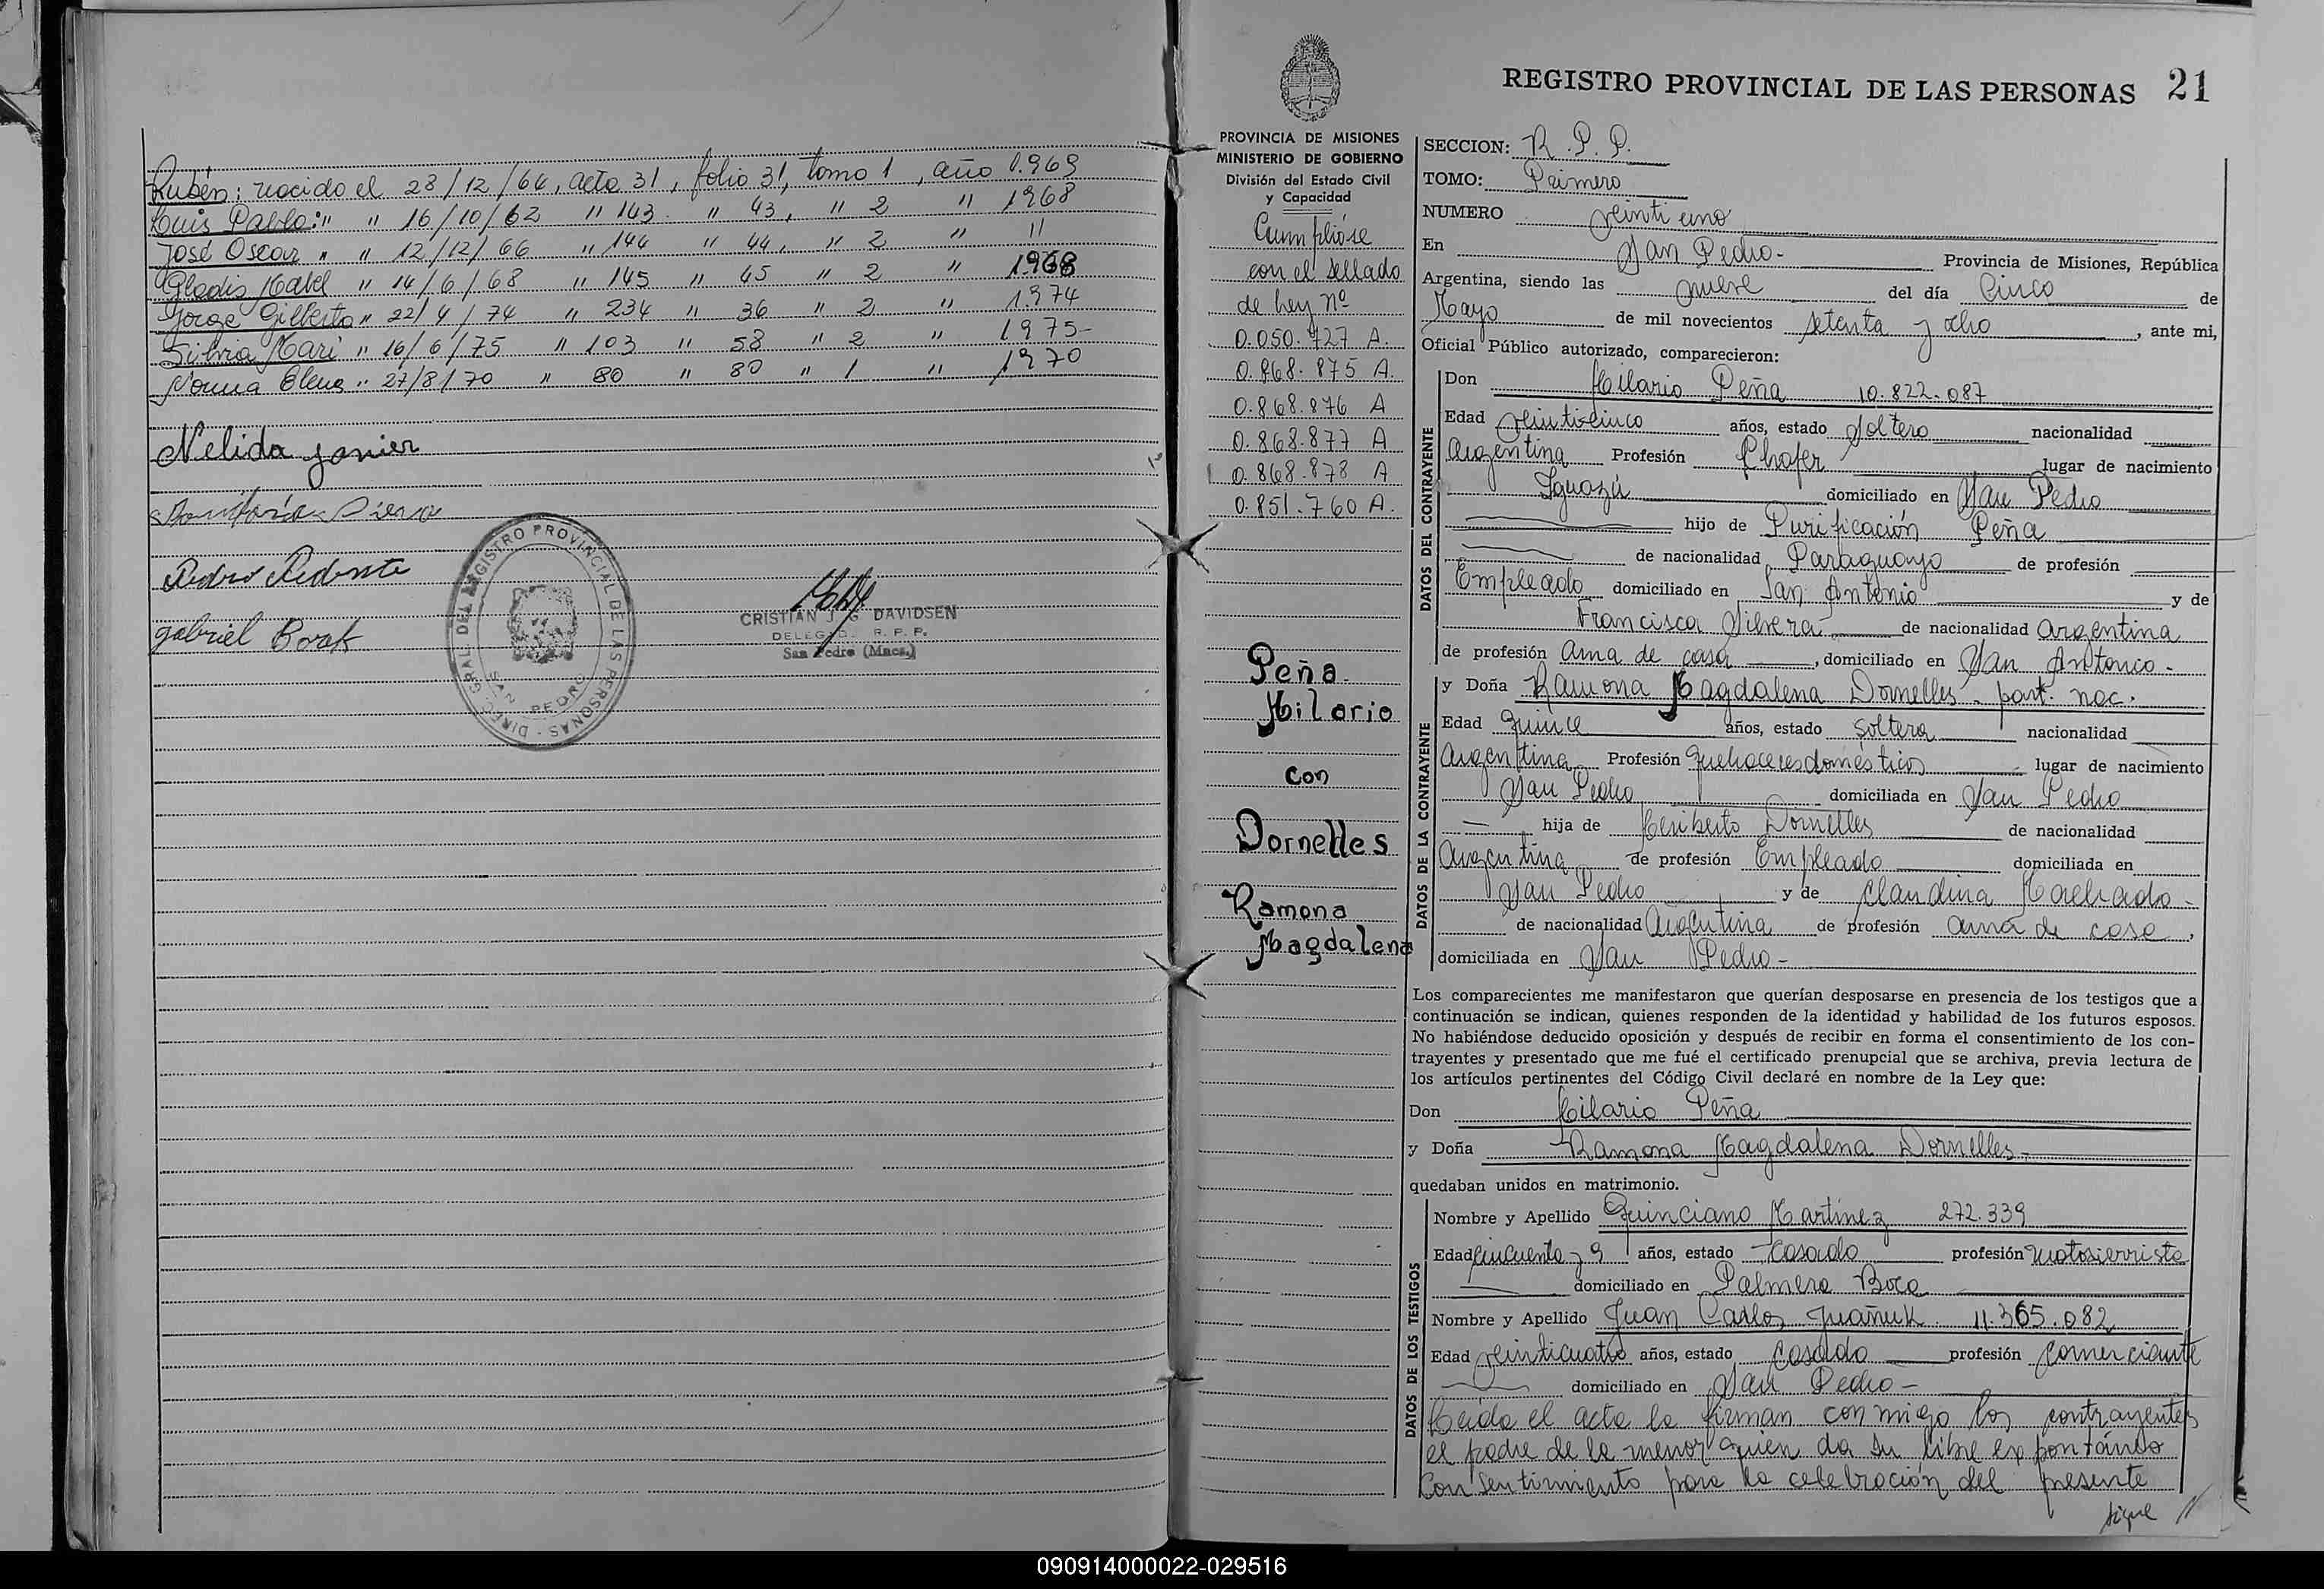 Rubén; nacido el 28/12/64, acta 31, folio 31, tomo 1, año 1.969
Luis Pablo: " " 16/10/62 " 143 " 43, " 2 " 1968
José Oscar " " 12/12/66 " 144 " 44, " 2 " "
Gladis Mabel " 14/6/68 " 145 " 45 " 2 " 1968
Jorge Gilberto " 22/4/74 " 234 " 36 " 2 " 1.974
Silvia Mari " 16/6/75 " 103 " 58 " 2 " 1975-
Norma Elena " 27/8/70 " 80 " 80 " 1 " 1970
Nelida Javier
Pedro
gabriel
DIREC. GRAL. DEL REGISTRO PROVINCIAL DE LAS PERSONAS - SAN PEDRO
CRISTIAN J. G DAVIDSEN
DELEGAD. R. P. P.
San Pedro (Mnes.)
REGISTRO PROVINCIAL DE LAS PERSONAS 21
PROVINCIA DE MISIONES
MINISTERIO DE GOBIERNO
División del Estado Civil
y Capacidad
Cumplióse
con el sellado
de ley nº
0.050.727 A.
0.868.875 A.
0.868.876 A
0.868.877 A
0.868.878 A
0.851.760 A.
Peña
Hilario
con
Dornelles
Ramona
Magdalena
SECCION: R.P.P.
TOMO: Primero
NUMERO veintiuno
En San Pedro- Provincia de Misiones, República
Argentina, siendo las nueve del día Cinco de
Mayo de mil novecientos setenta y ocho, ante mi,
Oficial Público autorizado, comparecieron:
DATOS DEL CONTRAYENTE
Don Hilario Peña 10.822.087
Edad veinticinco años, estado soltero nacionalidad
Argentina Profesión Chofer lugar de nacimiento
Iguazú domiciliado en San Pedro
hijo de Purificación Peña
de nacionalidad Paraguayo de profesión
Empleado domiciliado en San Antonio y de
Francisca Silvera de nacionalidad argentina
de profesión ama de casa, domiciliado en San Antonio-
DATOS DE LA CONTRAYENTE
y Doña Ramona Magdalena Dornelles- part. nac.
Edad quince años, estado soltera nacionalidad
Argentina Profesión Quehaceres domésticos lugar de nacimiento
San Pedro domiciliada en San Pedro
hija de Heriberto Dornelles de nacionalidad
Argentina de profesión Empleado domiciliada en
San Pedro y de Claudina Machado-
de nacionalidad Argentina de profesión ama de casa,
domiciliada en San Pedro-
Los comparecientes me manifestaron que querían desposarse en presencia de los testigos que a
continuación se indican, quienes responden de la identidad y habilidad de los futuros esposos.
No habiéndose deducido oposición y después de recibir en forma el consentimiento de los con-
trayentes y presentado que me fué el certificado prenupcial que se archiva, previa lectura de
los artículos pertinentes del Código Civil declaré en nombre de la Ley que:
Don Hilario Peña
y Doña Ramona Magdalena Dornelles-
quedaban unidos en matrimonio.
DATOS DE LOS TESTIGOS
Nombre y Apellido Quinciano Martinez 272.339
Edad cincuenta y 9 años, estado casado profesión motosierrista
domiciliado en Palmera Boca
Nombre y Apellido Juan Carlos 11.365.082
Edad veinticuatro años, estado casado profesión comerciante
domiciliado en San Pedro-
Leida el acta la firman conmigo los contrayentes
el padre de la menor quien da su libre espontáneo
Consentimiento para la celebración del presente
sigue //
090914000022-029516